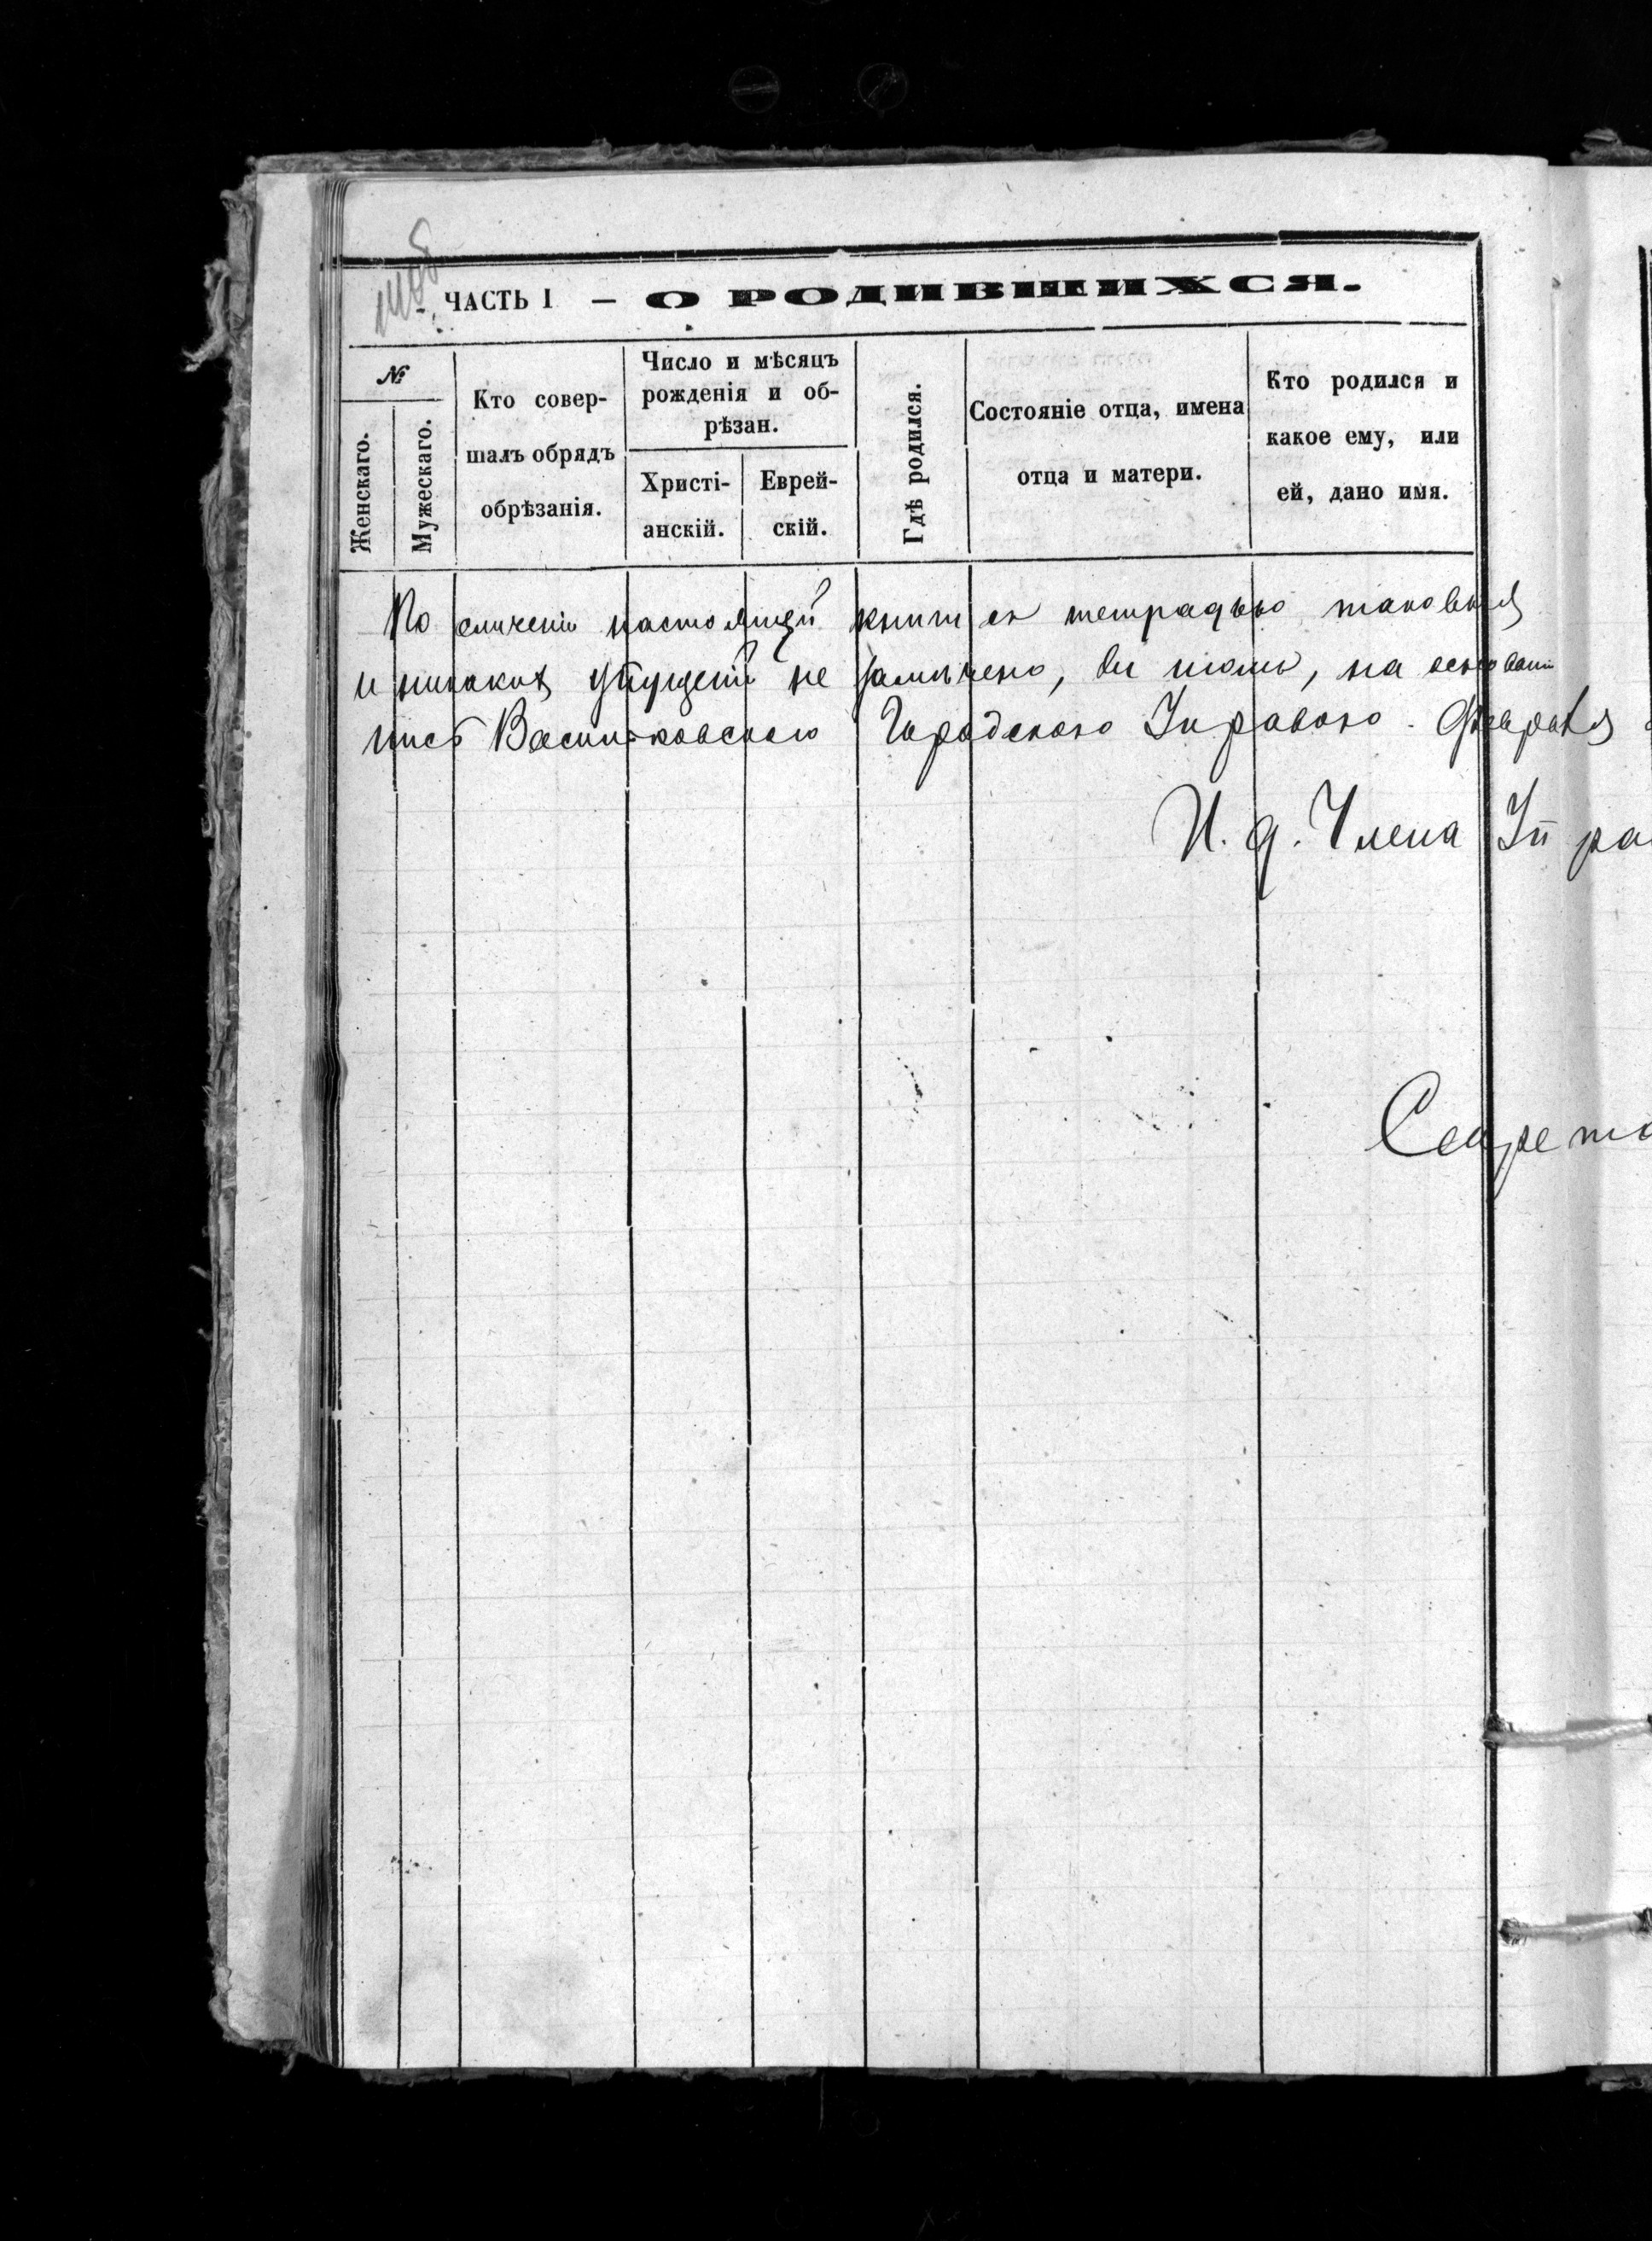 ЧАСТЬ I — О РОДИВШИХСЯ.
№
Женскаго.
Мужескаго.
Кто совер-
шалъ обрядъ
обрѣзанія.
Число и мѣсяцъ
рожденія и об-
рѣзан.
Христі-
анскій.
Еврей-
скій.
Гдѣ родился.
Состояніе отца, имена
отца и матери.
Кто родился и
какое ему, или
ей, дано имя.
По сличеніи настоящей книги съ тетрадью таковыя
и никакихъ упущеній не замѣчено, въ томъ, на основаніи
Васильковскою Городскою Управою. Февраля
И. д. Члена Упра
Секрета